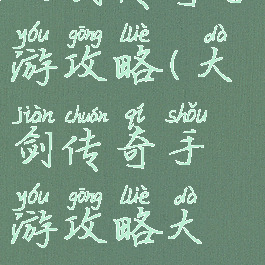 yóu gōng lüè dà
游攻略(大
jiàn chuán qí shǒu
剑传奇手
yóu gōng lüè dà
游攻略大